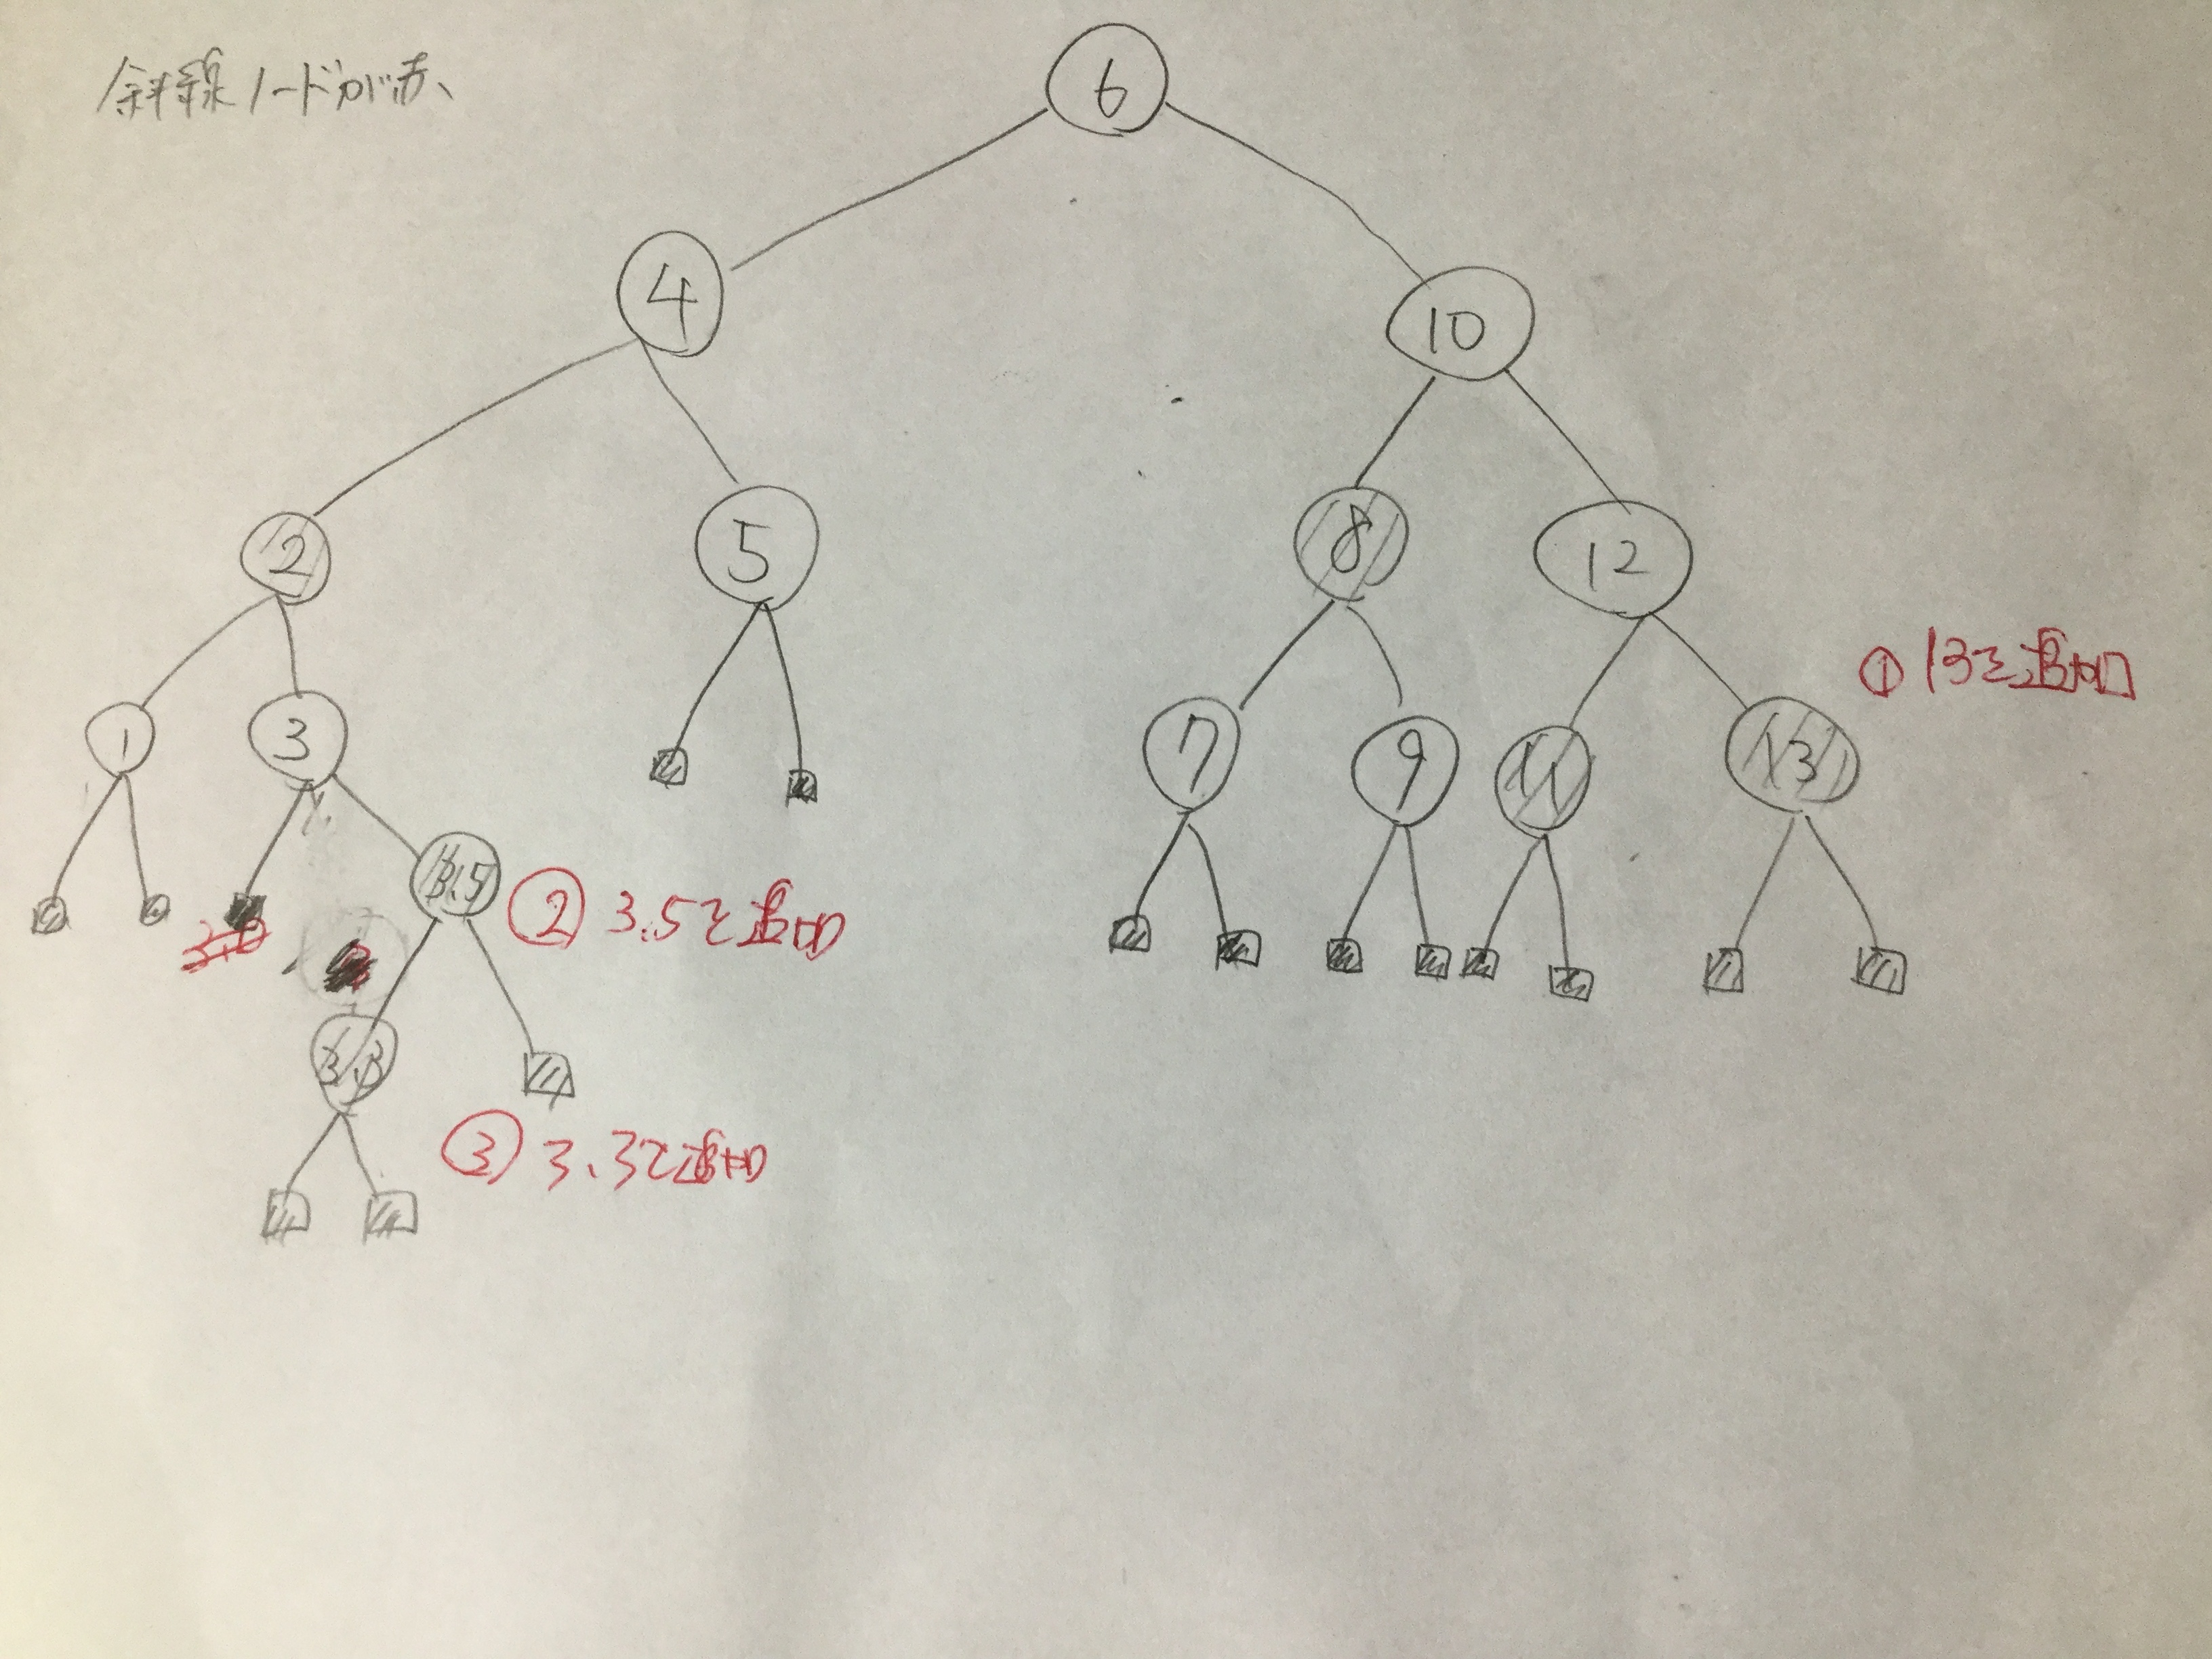 斜線ノードが赤、
6
4
10
2
5
8
12
1
3
7
9
11
13
① 13を追加
3.5
② 3.5を追加
3.3
③ 3.3を追加